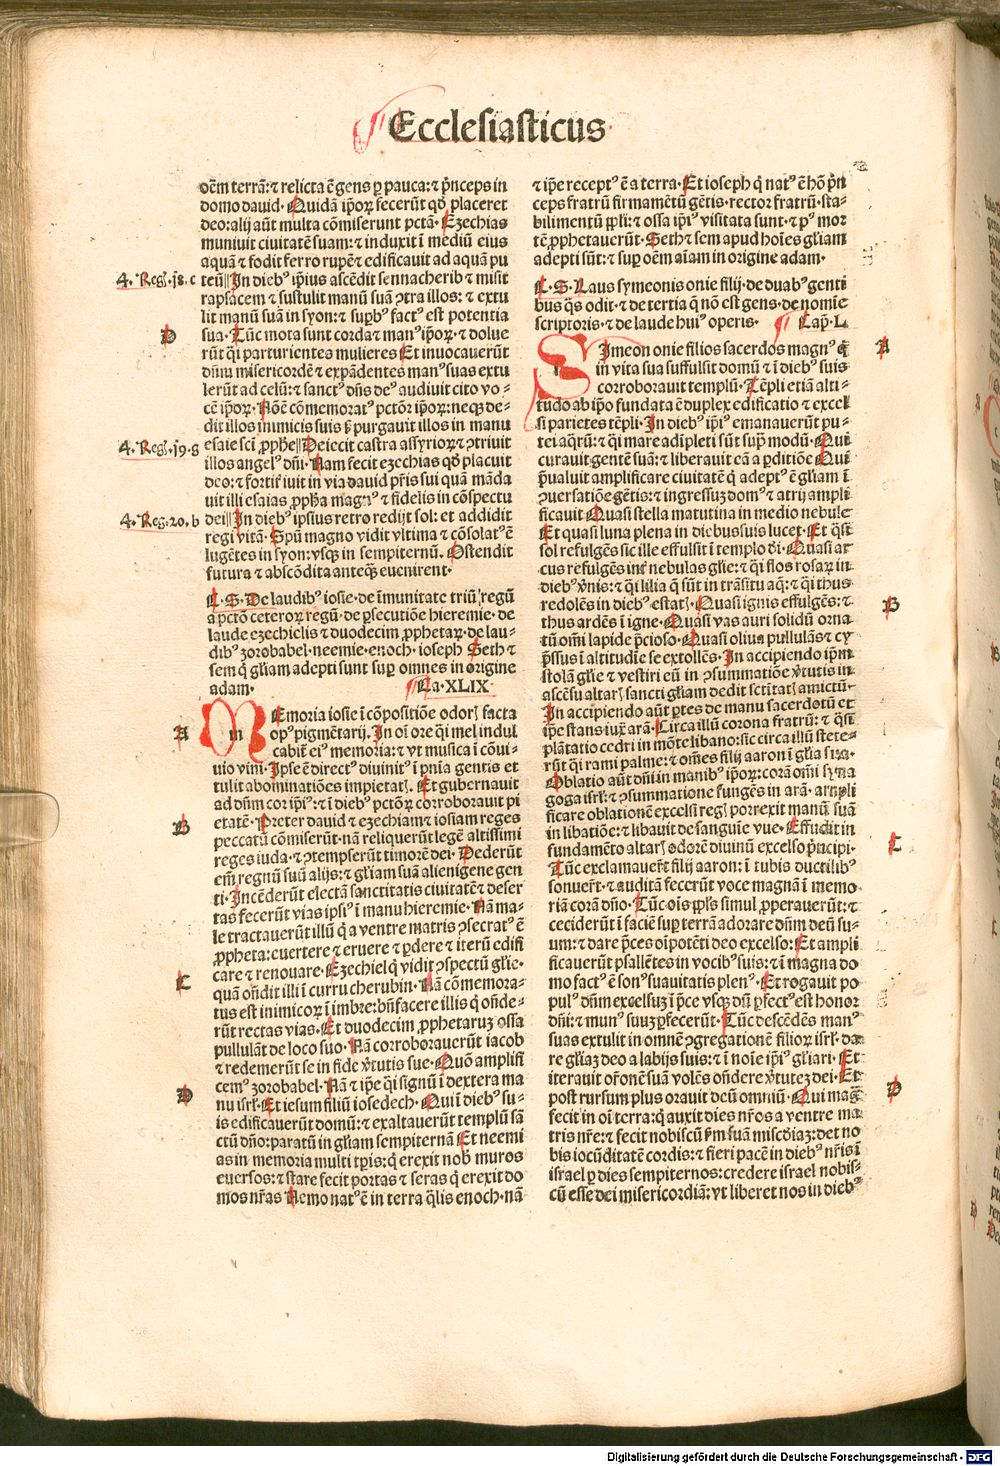 Ecclesiasticus
oēm terrā: ⁊ relicta ē gens ꝑ pauca: ⁊ p̄nceps in
domo dauid. Quidā ip̄oꝝ fecerūt qd̓ placeret
deo: alij aūt multa cōmiserunt pctā. Ezechias
muniuit ciuitatē suam: ⁊ induxit ī mediū eius
aquā ⁊ fodit ferro rupē ⁊ edificauit ad aquā pu
4. Reg. 18. c
teū|| In dieb⁹ ip̄ius ascēdit sennacherib ⁊ misit
rapsacem ⁊ sustulit manū suā ꝯtra illos: ⁊ extu
lit manū suā in syon: ⁊ suꝑb⁹ fact⁹ est potentia
D
sua. Tūc mota sunt corda ⁊ man⁹ ip̄oꝝ. ⁊ dolue
rūt q̄i parturientes mulieres Et inuocauerūt
dn̄m misericordē ⁊ expādentes man⁹ suas extu
lerūt ad celū: ⁊ sanct⁹ dn̄s de⁹ audiuit cito vo-
cē ip̄oꝝ. Nō ē cōmemorat⁹ pctōꝝ ip̄oꝝ: neqꝫ de-
dit illos inimicis suis sꝫ purgauit illos in manu
4. Reg. 19. g
esaie sci ꝓphe|| Deiecit castra assyrioꝝ ⁊ ꝯtriuit
illos angel⁹ dn̄i. Nam fecit ezechias qd̓ placuit
deo: ⁊ fortit̓ iuit in via dauid pr̄is sui quā māda
uit illi esaias ꝓph̄a magn⁹ ⁊ fidelis in cōspectu
4. Reg. 20. b
dei|| In dieb⁹ ipsius retro redijt sol: et addidit
regi vitā. Spū magno vidit vltima ⁊ cōsolat⁹ ē
lugētes in syon: vsqꝫ in sempiternū. Ostendit
futura ⁊ abscōdita anteqꝫ euenirent.
C. S. De laudib⁹ iosie. de īmunitate triū regū
a pctō ceteroꝝ regū. de ꝑsecutiōe hieremie. de
laude ezechielis ⁊ duodecim ꝓphetaꝝ. de lau-
dib⁹ zorobabel. neemie. enoch. ioseph Seth ⁊
sem q̄ gl̄iam adepti sunt suꝑ omnes in origine
adam. Ca. XLIX
A
MEmoria iosie ī cōpositiōe odor̄ facta
m op⁹ pigmētarij. In oī ore q̄i mel indul
cabit̓ ei⁹ memoria: ⁊ vt musica ī cōui-
uio vini. Ipse ē direct⁹ diuinit⁹ ī pn̄ia gentis et
tulit abominatiōes impietat̄. Et gubernauit
ad dn̄m cor ip̄i⁹: ⁊ ī dieb⁹ pctōꝝ corroborauit pi
B
etatē. Preter dauid ⁊ ezechiam ⁊ iosiam reges
peccatū cōmiserūt. nā reliquerūt legē altissimi
reges iuda. ⁊ ꝯtempserūt timorē dei. Dederūt
em̄ regnū suū alijs: ⁊ gl̄iam suā alienigene gen
ti. Incēderūt electā sanctitatis ciuitatē ⁊ deser
tas fecerūt vias ipsi⁹ ī manu hieremie. Nā ma-
le tractauerūt illū q̄ a ventre matris ꝯsecrat⁹ ē
ꝓpheta: euertere ⁊ eruere ⁊ ꝑdere ⁊ iterū edifi
care ⁊ renouare. Ezechiel q̄ vidit ꝯspectū gl̄ie.
C
quā on̄dit illi ī curru cherubin. Nā cōmemora-
tus est inimicoꝝ ī imbre: bn̄facere illis q̄ on̄de-
rūt rectas vias. Et duodecim ꝓphetaruꝫ ossa
pullulāt de loco suo. Nā corroborauerūt iacob
⁊ redemerūt se in fide v̓tutis sue. Quō amplifi
cem⁹ zorobabel. Nā ⁊ ip̄e q̄i signū ī dextera ma
D
nu isrl̄. Et iesum filiū iosedech. Qui ī dieb⁹ su-
is edificauerūt domū: ⁊ exaltauerūt templū sā
ctū dn̄o: paratū in gl̄iam sempiternā Et neemi
as in memoria multi tꝑis: q̄ erexit nob̄ muros
euersos: ⁊ stare fecit portas ⁊ seras q̄ erexit do
mos nr̄as Nemo nat⁹ ē in terra q̄lis enoch. nā
⁊ ip̄e recept⁹ ē a terra. Et ioseph q̄ nat⁹ ē hō p̄n
ceps fratrū firmamētū gētis. rector fratrū. sta-
bilimentū ppl̄i: ⁊ ossa ip̄i⁹ visitata sunt. ⁊ p⁹ mor
tē ꝓphetauerūt. Seth ⁊ sem apud hoīes gl̄iam
adepti sūt: ⁊ suꝑ oēm aīam in origine adam.
C. S. Laus symeonis onie filij. de duab⁹ genti
bus q̄s odit. ⁊ de tertia q̄ nō est gens. de nomīe
scriptoris. ⁊ de laude hui⁹ operis. Cap̄. L
A
SImeon onie filios sacerdos magn⁹ q̄
in vita sua suffulsit domū ⁊ ī dieb⁹ suis
corroborauit templū. Tēpli etiā alti-
tudo ab ip̄o fundata ē duplex edificatio ⁊ excel
si parietes tēpli. In dieb⁹ ip̄i⁹ emanauerūt pu-
tei aq̄rū: ⁊ q̄i mare adīpleti sūt suꝑ modū. Qui
curauit gentē suā: ⁊ liberauit eā a ꝑditiōe Qui
p̄ualuit amplificare ciuitatē q̄ adept⁹ ē gl̄iam ī
ꝯuersatiōe gētis: ⁊ ingressuꝫ dom⁹ ⁊ atrij ampli
ficauit Quasi stella matutina in medio nebule
Et quasi luna plena in diebus suis lucet. Et q̄si
sol refulgēs sic ille effulsit ī templo dī. Quasi ar
cus refulgēs int̓ nebulas gl̄ie: ⁊ q̄i flos rosaꝝ in
dieb⁹ v̓nis: ⁊ q̄i lilia q̄ sūt in trāsitu aq̄: ⁊ q̄i thus
B
redolēs in dieb⁹ estat̄. Quasi ignis effulgēs: ⁊
thus ardēs ī igne. Quasi vas auri solidū orna
tū om̄i lapide p̄cioso. Quasi oliua pullulās ⁊ cy
p̄ssus ī altitudīe se extollēs. In accipiendo ip̄m
stolā gl̄ie ⁊ vestiri eū in ꝯsummatiōe v̓tutis in
ascēsu altar̄ sancti gl̄iam dedit sctītat̄ amictū.
In accipiendo aūt ꝑtes de manu sacerdotū et
ip̄e stans iux̄ arā. Circa illū corona fratrū: ⁊ q̄si
plātatio cedri in mōte libano: sic circa illū stete-
rūt q̄i rami palme: ⁊ om̄es filij aaron ī gl̄ia sua.
Oblatio aūt dn̄i in manib⁹ ip̄oꝝ: corā om̄i syna
goga isrl̄: ⁊ ꝯsummatione fungēs in arā. ampli
ficare oblationē excelsi reḡ porrexit manū suā
in libatiōe: ⁊ libauit de sanguīe vue. Effudit in
C
fundamēto altar̄ odorē diuinū excelso p̄ncipi.
Tūc exclamauer̄t filij aaron: ī tubis ductilib⁹
sonuer̄t. ⁊ auditā fecerūt voce magnā ī memo
riā corā dn̄o. Tūc oīs ppl̄s simul ꝓperauerūt: ⁊
ceciderūt ī faciē suꝑ terrā adorare dn̄m deū su-
um: ⁊ dare p̄ces oīpotēti deo excelso: Et ampli
ficauerūt psallētes in vocib⁹ suis: ⁊ ī magna do
mo fact⁹ ē son⁹ suauitatis plen⁹. Et rogauit po
pul⁹ dn̄m excelsuꝫ ī p̄ce vsqꝫ dū ꝑfect⁹ est honor
dn̄i: ⁊ mun⁹ suuꝫ ꝑfecerūt. Tūc descēdēs man⁹
suas extulit in omnē ꝯgregationē filioꝝ isrl̄. da-
re gl̄iaꝫ deo a labijs suis: ⁊ ī noīe ip̄i⁹ gl̄iari. Et
iterauit or̄onē suā volēs on̄dere v̓tuteꝫ dei. Et
D
post rursum plus orauit deū omniū. Qui maḡ
fecit in oī terra: q̄ auxit dies nr̄os a ventre ma-
tris nr̄e: ⁊ fecit nobiscū ẜm suā misc̄diaꝫ: det no
bis iocūditatē cordis: ⁊ fieri pacē in dieb⁹ nr̄is ī
israel ꝑ dies sempiternos: credere israel nobis-
cū esse dei misericordiā: vt liberet nos in dieb⁹
Digitalisierung gefördert durch die Deutsche Forschungsgemeinschaft - DFG